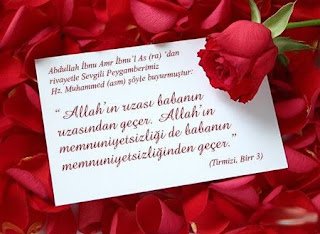 Abdullah İbnu Amr İbnu'l As (ra) 'dan
rivayetle Sevgili Peygamberimiz
Hz. Muhammed (asm) şöyle buyurmuştur:
“ Allah'ın rızası babanın
rızasından geçer. Allah'ın
memnuniyetsizliği de babanın
memnuniyetsizliğinden geçer.”
(Tirmizi, Birr 3)